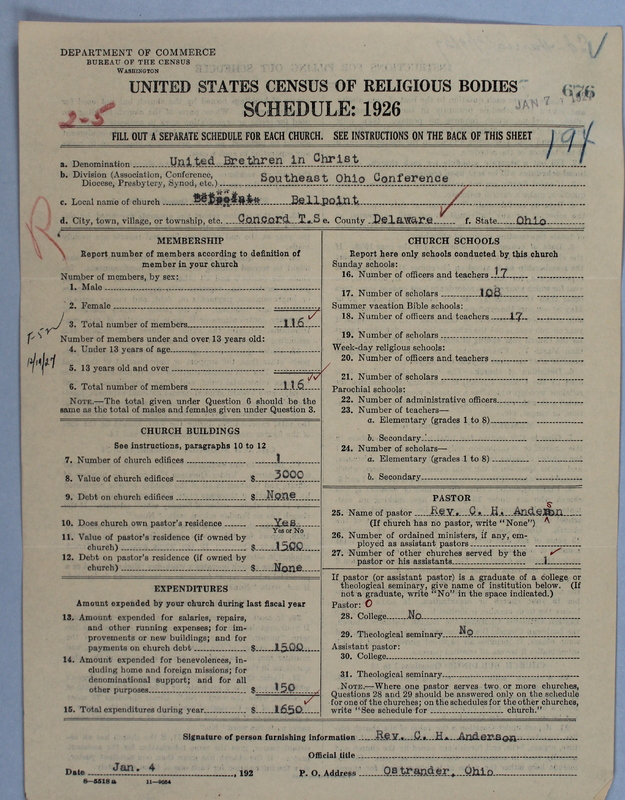 DEPARTMENT OF COMMERCE
BUREAU OF THE CENSUS
WASHINGTON
UNITED STATES CENSUS OF RELIGIOUS BODIES
SCHEDULE: 1926
676
JAN 7
2-5
194
FILL OUT A SEPARATE SCHEDULE FOR EACH CHURCH. SEE INSTRUCTIONS ON THE BACK OF THIS SHEET
a. Denomination United Brethren in Christ
b. Division (Association, Conference, Diocese, Presbytery, Synod, etc.) Southeast Ohio Conference
c. Local name of church Bellpoint
d. City, town, village, or township, etc. Concord T.S e. County Delaware f. State Ohio
R
MEMBERSHIP
Report number of members according to definition of
member in your church
Number of members, by sex:
1. Male
2. Female
3. Total number of members 116
Number of members under and over 13 years old:
4. Under 13 years of age
5. 13 years old and over
12/19/27
6. Total number of members 116
NOTE.—The total given under Question 6 should be the
same as the total of males and females given under Question 3.
CHURCH BUILDINGS
See instructions, paragraphs 10 to 12
7. Number of church edifices 1
8. Value of church edifices $ 3000
9. Debt on church edifices $ None
10. Does church own pastor's residence Yes
Yes or No
11. Value of pastor's residence (if owned by
church) $ 1500
12. Debt on pastor's residence (if owned by
church) $ None
EXPENDITURES
Amount expended by your church during last fiscal year
13. Amount expended for salaries, repairs,
and other running expenses; for im-
provements or new buildings; and for
payments on church debt $ 1500
14. Amount expended for benevolences, in-
cluding home and foreign missions; for
denominational support; and for all
other purposes $ 150
15. Total expenditures during year $ 1650
CHURCH SCHOOLS
Report here only schools conducted by this church
Sunday schools:
16. Number of officers and teachers 17
17. Number of scholars 108
Summer vacation Bible schools:
18. Number of officers and teachers 17
19. Number of scholars
Week-day religious schools:
20. Number of officers and teachers
21. Number of scholars
Parochial schools:
22. Number of administrative officers
23. Number of teachers—
a. Elementary (grades 1 to 8)
b. Secondary
24. Number of scholars—
a. Elementary (grades 1 to 8)
b. Secondary
PASTOR
25. Name of pastor Rev. C. H. Anderson
(If church has no pastor, write "None")
26. Number of ordained ministers, if any, em-
ployed as assistant pastors
27. Number of other churches served by the
pastor or his assistants 1
If pastor (or assistant pastor) is a graduate of a college or
theological seminary, give name of institution below. (If
not a graduate, write "No" in the space indicated.)
Pastor: 0
28. College No
29. Theological seminary No
Assistant pastor:
30. College
31. Theological seminary
NOTE.—Where one pastor serves two or more churches,
Questions 28 and 29 should be answered only on the schedule
for one of the churches; on the schedules for the other churches,
write "See schedule for church."
Signature of person furnishing information Rev. C. H. Anderson
Official title
Date Jan. 4, 192 P. O. Address Ostrander, Ohio
8-5518a 11-9054